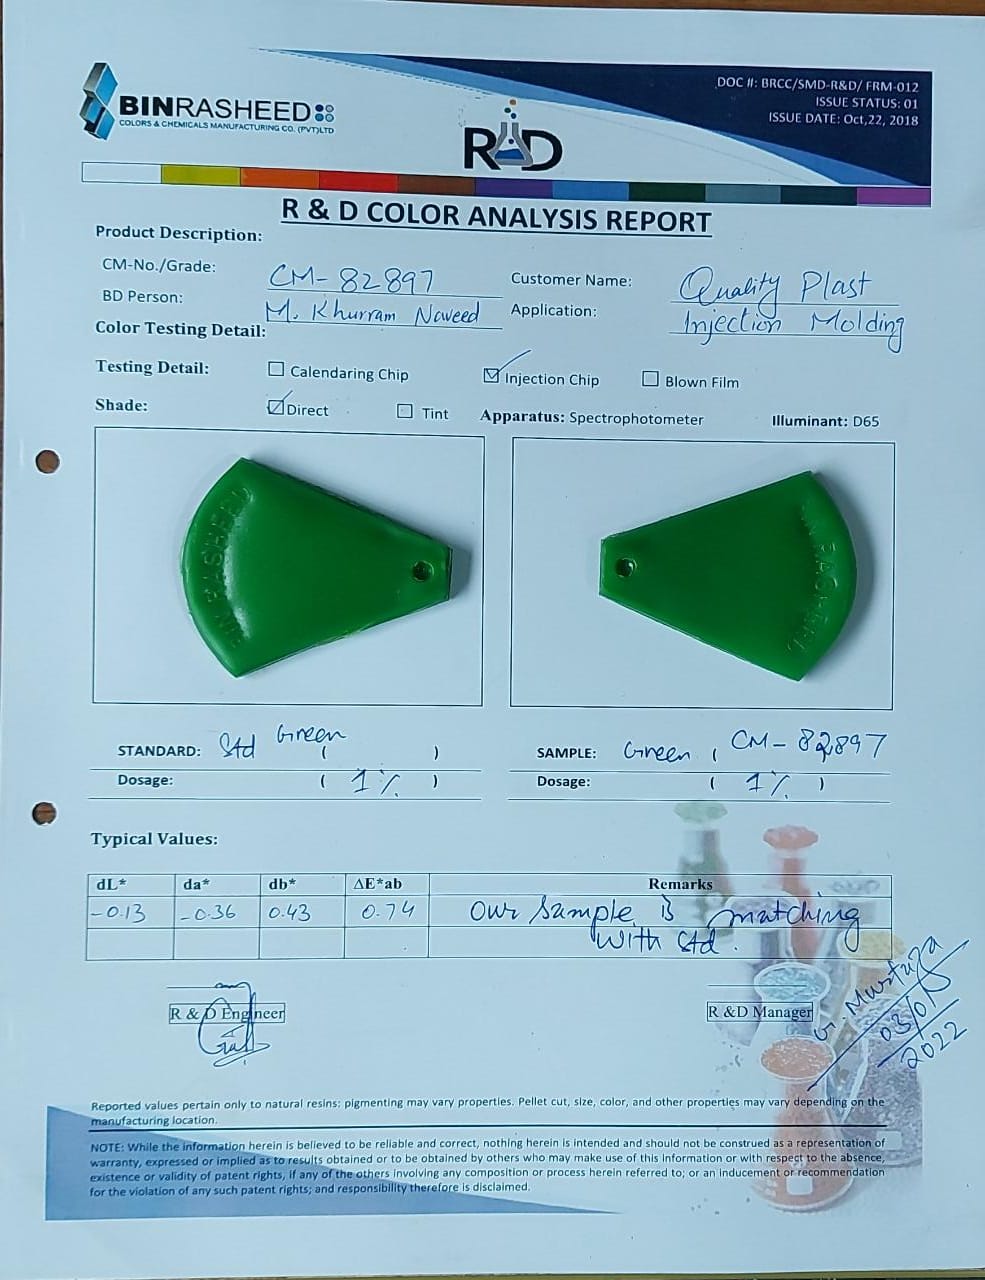 BINRASHEED
COLORS & CHEMICALS MANUFACTURING CO. (PVT)LTD
R&D
DOC #: BRCC/SMD-R&D/ FRM-012
ISSUE STATUS: 01
ISSUE DATE: Oct,22, 2018
R & D COLOR ANALYSIS REPORT
Product Description:
CM-No./Grade: CM-82897 Customer Name: Quality Plast
BD Person: M. Khurram Naveed Application: Injection Molding
Color Testing Detail:
Testing Detail: Calendaring Chip Injection Chip Blown Film
Shade: Direct Tint Apparatus: Spectrophotometer Illuminant: D65
BIN RASHEED
STANDARD: Std Green ( ) SAMPLE: Green ( CM-82897
Dosage: ( 1% ) Dosage: ( 1% )
Typical Values:
dL* da* db* ΔE*ab Remarks
-0.13 -0.36 0.43 0.74 Our sample is matching
with std.
R & D Engineer R &D Manager
03/01/
2022
Reported values pertain only to natural resins: pigmenting may vary properties. Pellet cut, size, color, and other properties may vary depending on the
manufacturing location.
NOTE: While the information herein is believed to be reliable and correct, nothing herein is intended and should not be construed as a representation of
warranty, expressed or implied as to results obtained or to be obtained by others who may make use of this information or with respect to the absence,
existence or validity of patent rights, if any of the others involving any composition or process herein referred to; or an inducement or recommendation
for the violation of any such patent rights; and responsibility therefore is disclaimed.